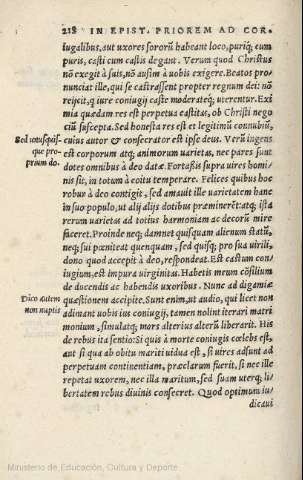 218 IN EPIST. PRIOREM AD COR.
iugalibus, aut uxores sororũ habeant loco, puriq; cum
puris, casti cum castis degant. Verum quod Christus
nõ exegit à suis, nõ ausim à uobis exigere. Beatos pro-
nunciat ille, qui se castrassent propter regnum dei: nõ
reijcit, q iure coniugij caste moderateq; uterentur. Exi
mia quædam res est perpetua castitas, ob Christi nego
ciũ suscepta. Sed honesta res est et legitimũ connubiũ,
Sed unusquis
que pro-
prium do.
cuius autor & consecrator est ipse deus. Verũ ingens
est corporum atq; animorum uarietas, nec pares sunt
dotes omnibus à deo datæ. Fortassis supra uires homi/
nis sit, in totum à coitu temperare. Felices quibus hoc
robur à deo contigit, sed amauit ille uarietatem hanc
in suo populo, ut alij alijs dotibus præminerẽt: atq; ista
rerum uarietas ad totius harmoniam ac decorũ mire
faceret. Proinde neq; damnet quisquam alienum statũ,
neq; sui pœniteat quenquam, sed quisq; pro sua uirili,
dono quod accepit à deo, respondeat. Est castum con/
iugium, est impura uirginitas. Habetis meum cõsilium
de ducendis ac habendis uxoribus. Nunc ad digamiæ
Dico autem
non nuptis
quæstionem accipite. Sunt enim, ut audio, qui licet non
adimant uobis ius coniugij, tamen nolint iterari matri
monium, simulatq; mors alterius alterũ liberarit. His
de rebus ita sentio: Si quis à morte coniugis cœlebs est,
aut si qua ab obitu mariti uidua est, si uires adsunt ad
perpetuam continentiam, præclarum fuerit, si nec ille
repetat uxorem, nec illa maritum, sed suam uterq; li/
bertatem rebus diuinis consecret. Quod optimum iu/
dicaui
Ministerio de Educación, Cultura y Deporte